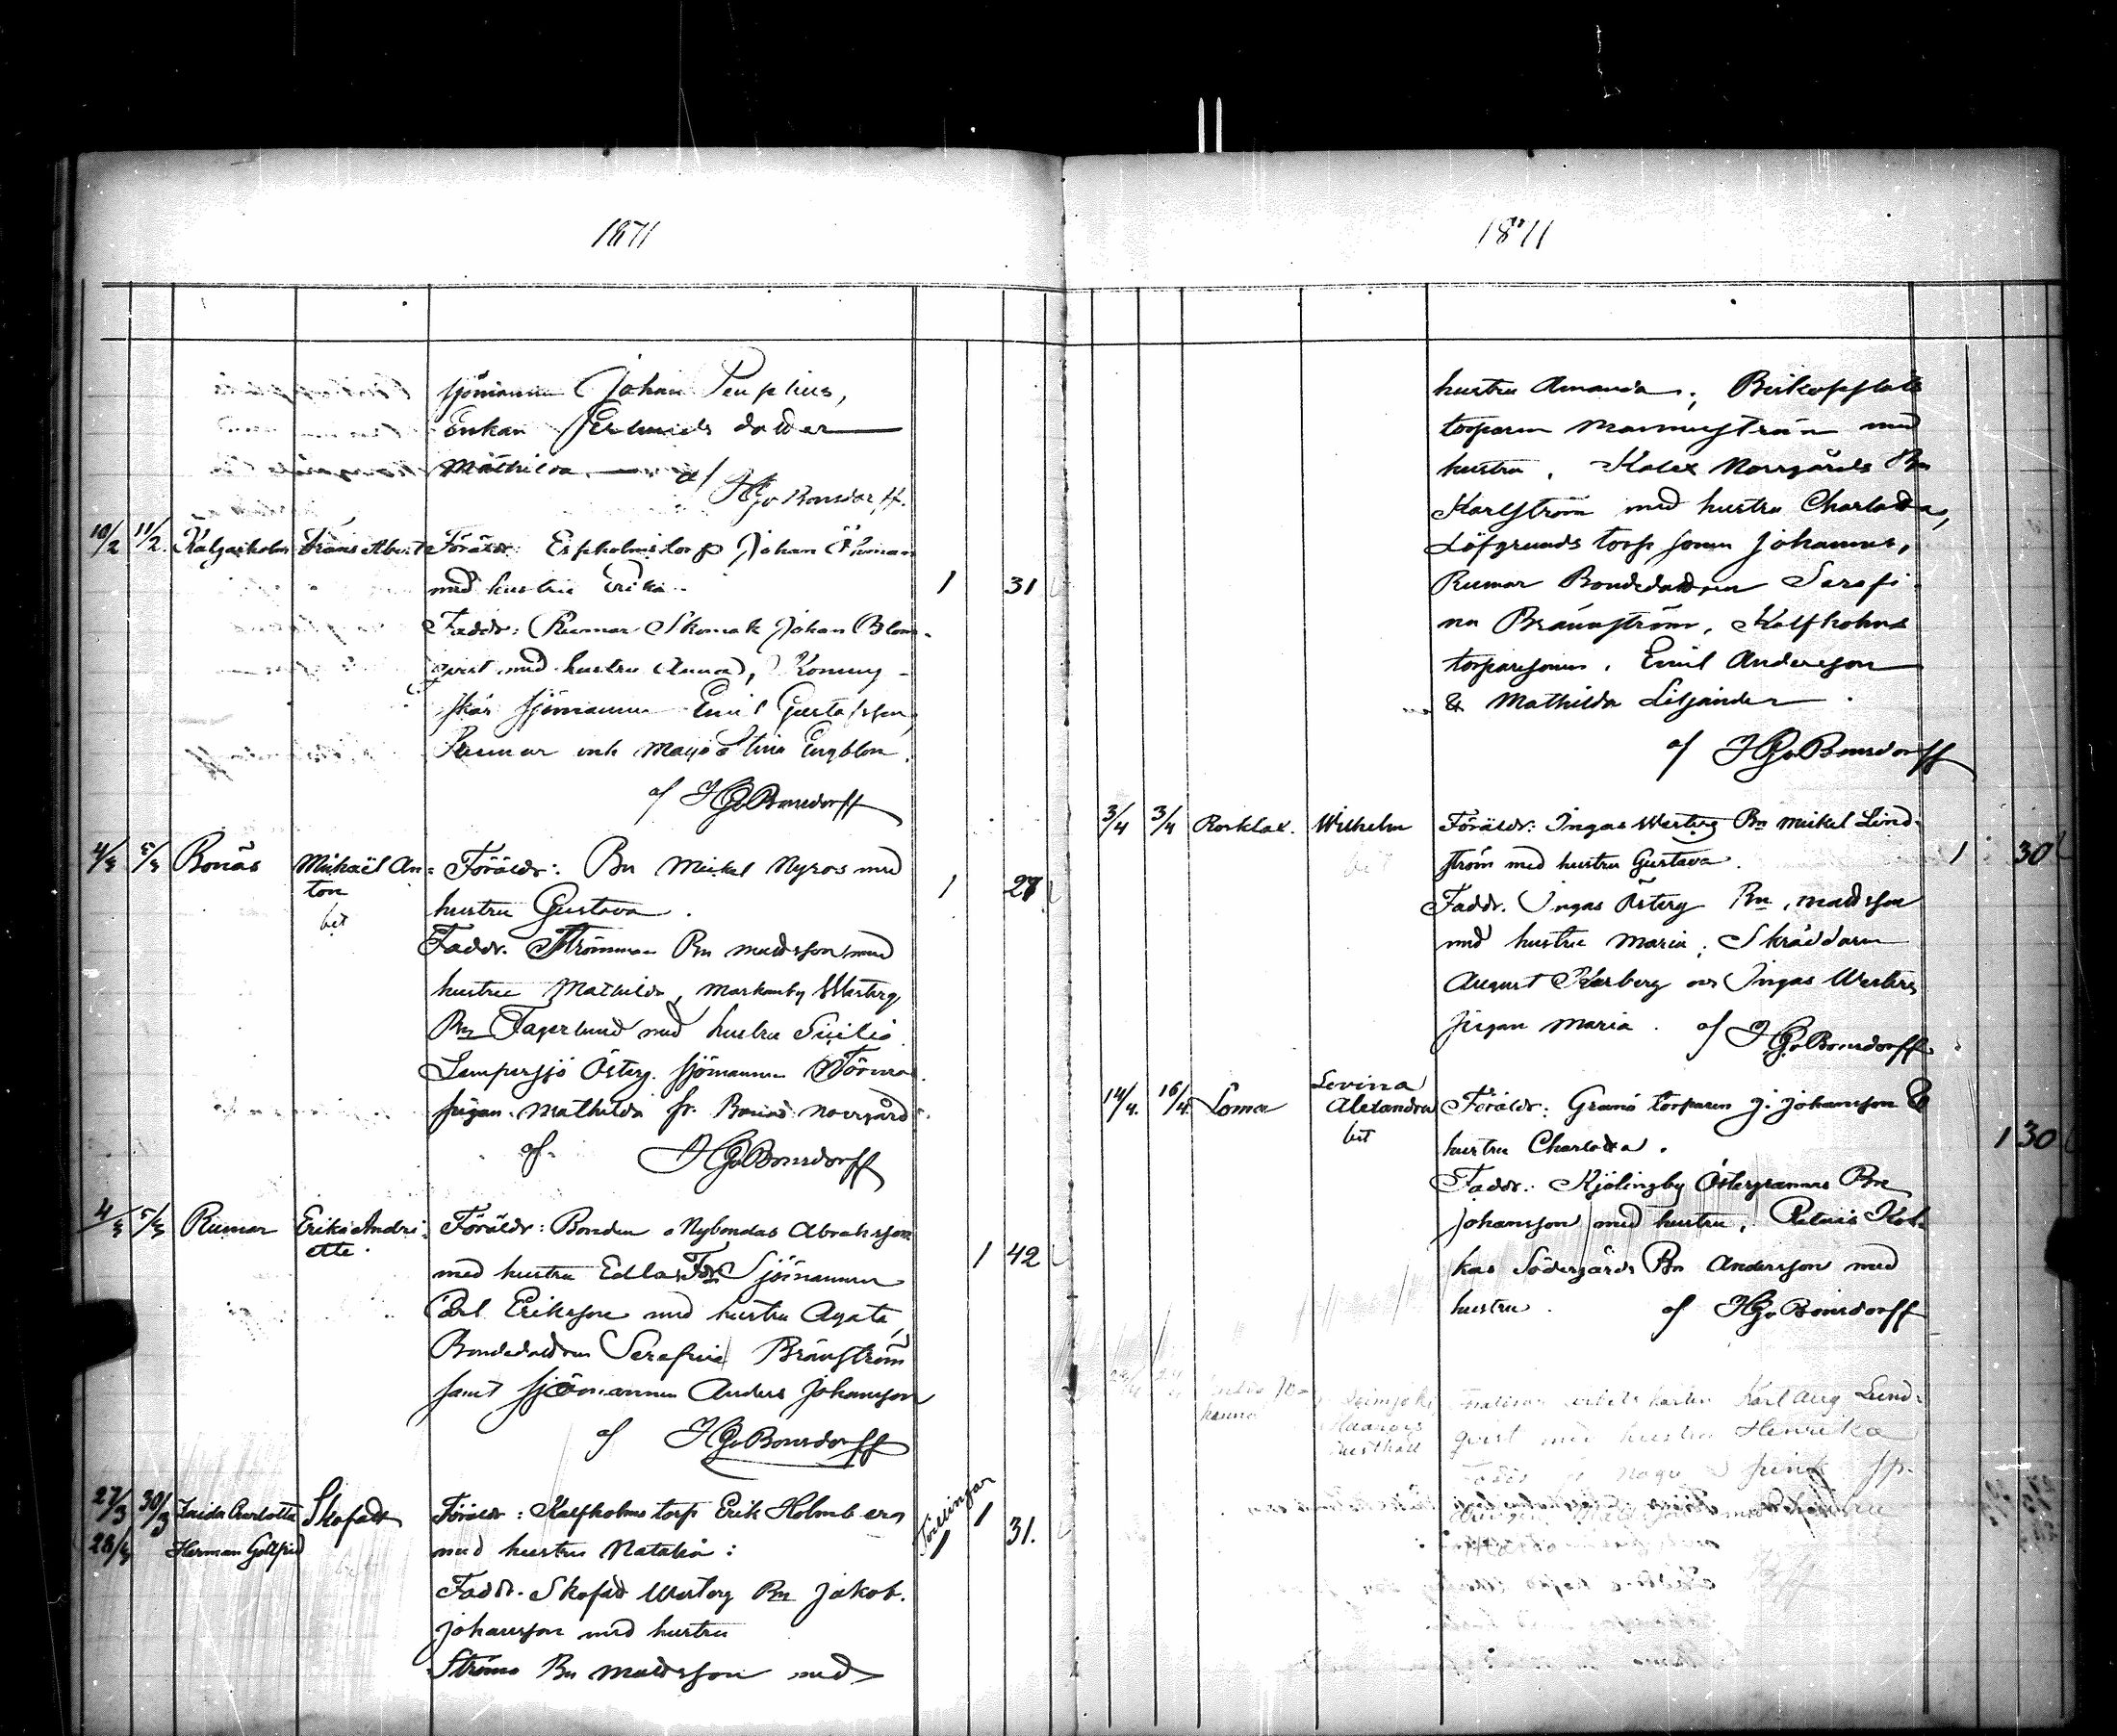 1871
sjömannen Johan
Enkan dotter
Mathilda af
HGvBonsdorff.
10/2 11/2. Kalgasholm Frans Albert Föräldr: Espholms torp Johan Öhman
med hustru Erika.
1 31
Faddr: Rumar Skomak Johan Blom-
qvist med hustru Anna, Konung-
skär sjömannen Emil Gustafsson,
Rumar enk Maja Stina Engblom.
af HGvBonsdorff
4/3 5/3 Bonäs Mikaël An- Föräldr: Bn Mickel Nyroos med
ton
bet
hustru Gustava.
1 27
Faddr. Strömma Bn Mattsson med
hustru Mathilda, Markomby Westerg
Bn Fagerlund med hustru Sicilia
Lempersjö Österg. sjömannen Törnroos
pigan Mathilda fr. Bonäs Norrgård
af HGvBonsdorff
4/3 5/3 Rumar Erika Andri- Föräldr: Bonden Nybondas Abrahsson
ette.
med hustru Edla Fdr Sjömannen
1 42
Carl Eriksson med hustru Agata,
Bondedottren Serafina Bränström
samt sjömannen Anders Johansson
af HGvBonsdorff
27/3 30/3 Ida Charlotta Skofatt Föräldr: Kalfholms torp Erik Holmberg
28/3 Herman Gottfrid
med hustru Natalia:
Tvillingar
1 1 31.
Faddr. Skofat Westerg Bn Jakob
Johansson med hustru
Strömma Bn Mattsson med
1871
hustru Amanda; Biskopslats
torparen Malmström med
hustru. Kalax Norrgårds Bn
Karlström med hustru Charlotta,
Löfgrunds torp sonen Johannes,
Rumar Bondedottren Serafi-
na Bränström, Kalfholms
torparesonen Emil Andersson
& Mathilda Liljander
af HGvBonsdorff
3/4 3/4 Rosklax. Wilhelm Föräldr: Ingas Westerg Bn Mickel Lind-
ström med hustru Gustava.
1 30
Faddr. Ingas Österg Bn, Mattsson
med hustru Maria; Skräddaren
August Karberg och Ingas Westerg
pigan Maria. af HGvBonsdorff
14/4. 16/4. Loma Levina
Alexandra Föräldr: Granö torparen J. Johansson &
bet
hustru Charlotta.
1 30
Faddr. Kjölingby Östergrannas Bn
Johansson med hustru, Retais Kok-
kas Södergårds Bn Andersson med
hustru. af HGvBonsdorff
Karl Aug Lund-
qvist med hustru Henrika